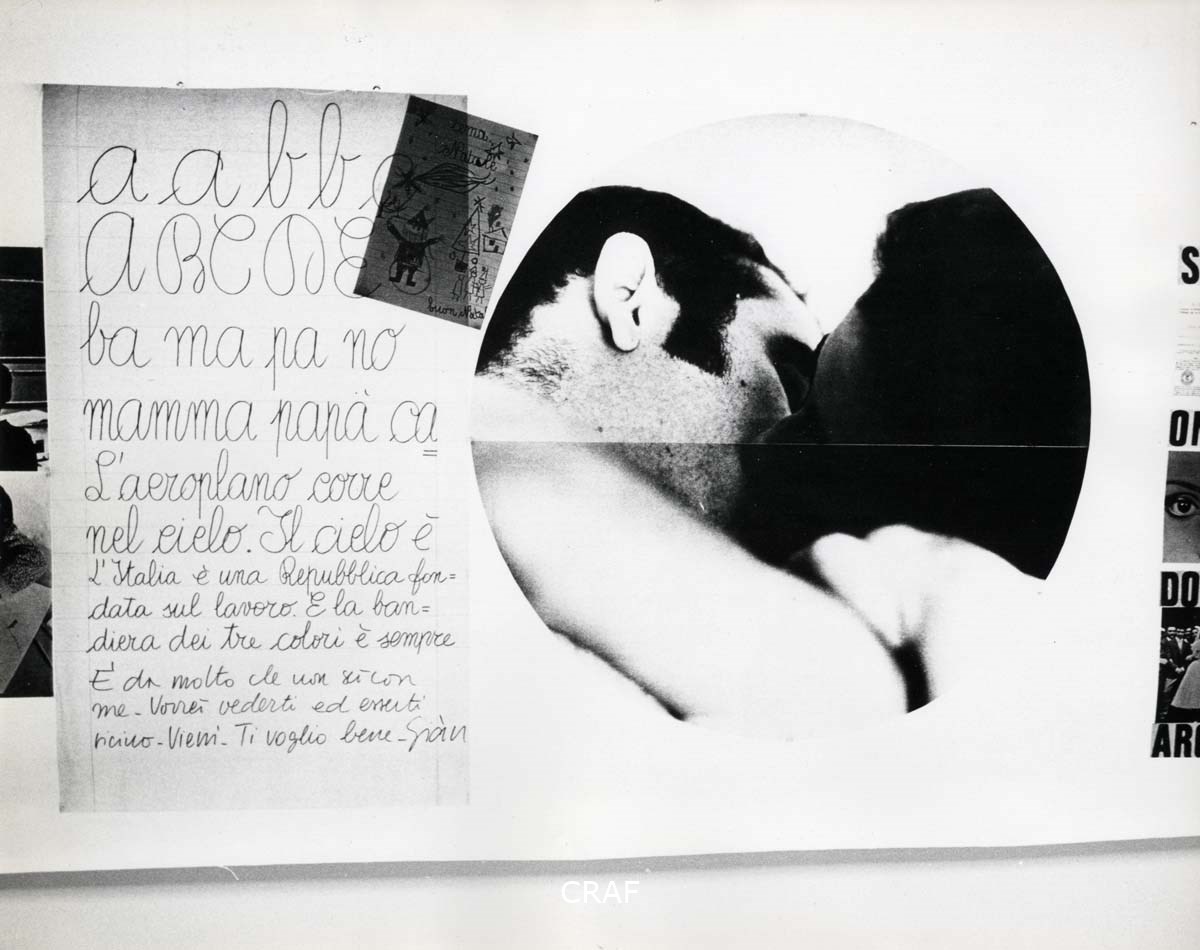 a a b b c
A B C D E
ba ma pa no
mamma papà ca
L'aeroplano corre
nel cielo. Il cielo è
L'Italia è una Repubblica fon=
data sul lavoro. E la ban=
diera dei tre colori è sempre
E' da molto che non sei con
me - Vorrei vederti ed esserti
vicino - Vieni - Ti voglio bene - Giàn
buon Natal
S
OR
DO
ARC
CRAF